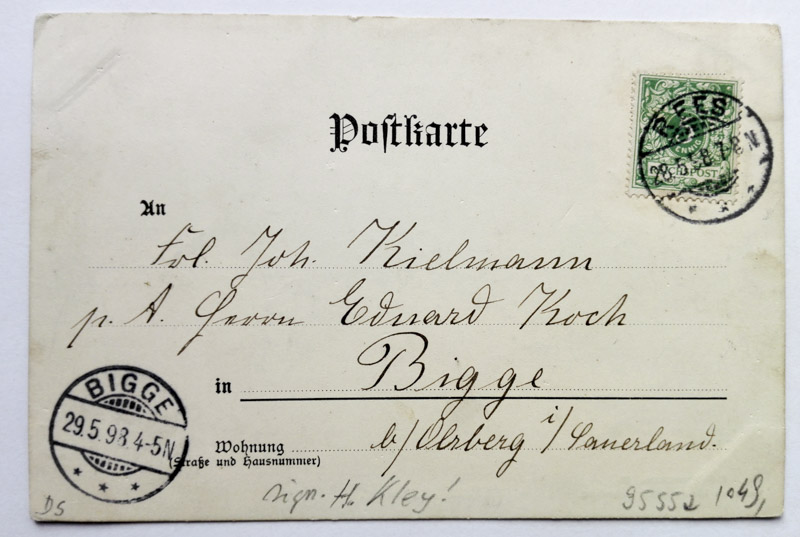 Postkarte
REES
28.5.98.7-8N
An
Frl. Joh. Kielmann
p. A. Herrn Eduard Koch
in Bigge
BIGGE
29.5.98.4-5N
Wohnung b/Olsberg i/Sauerland.
(Straße und Hausnummer)
sign. H. Kley!
DS
95552 1049,